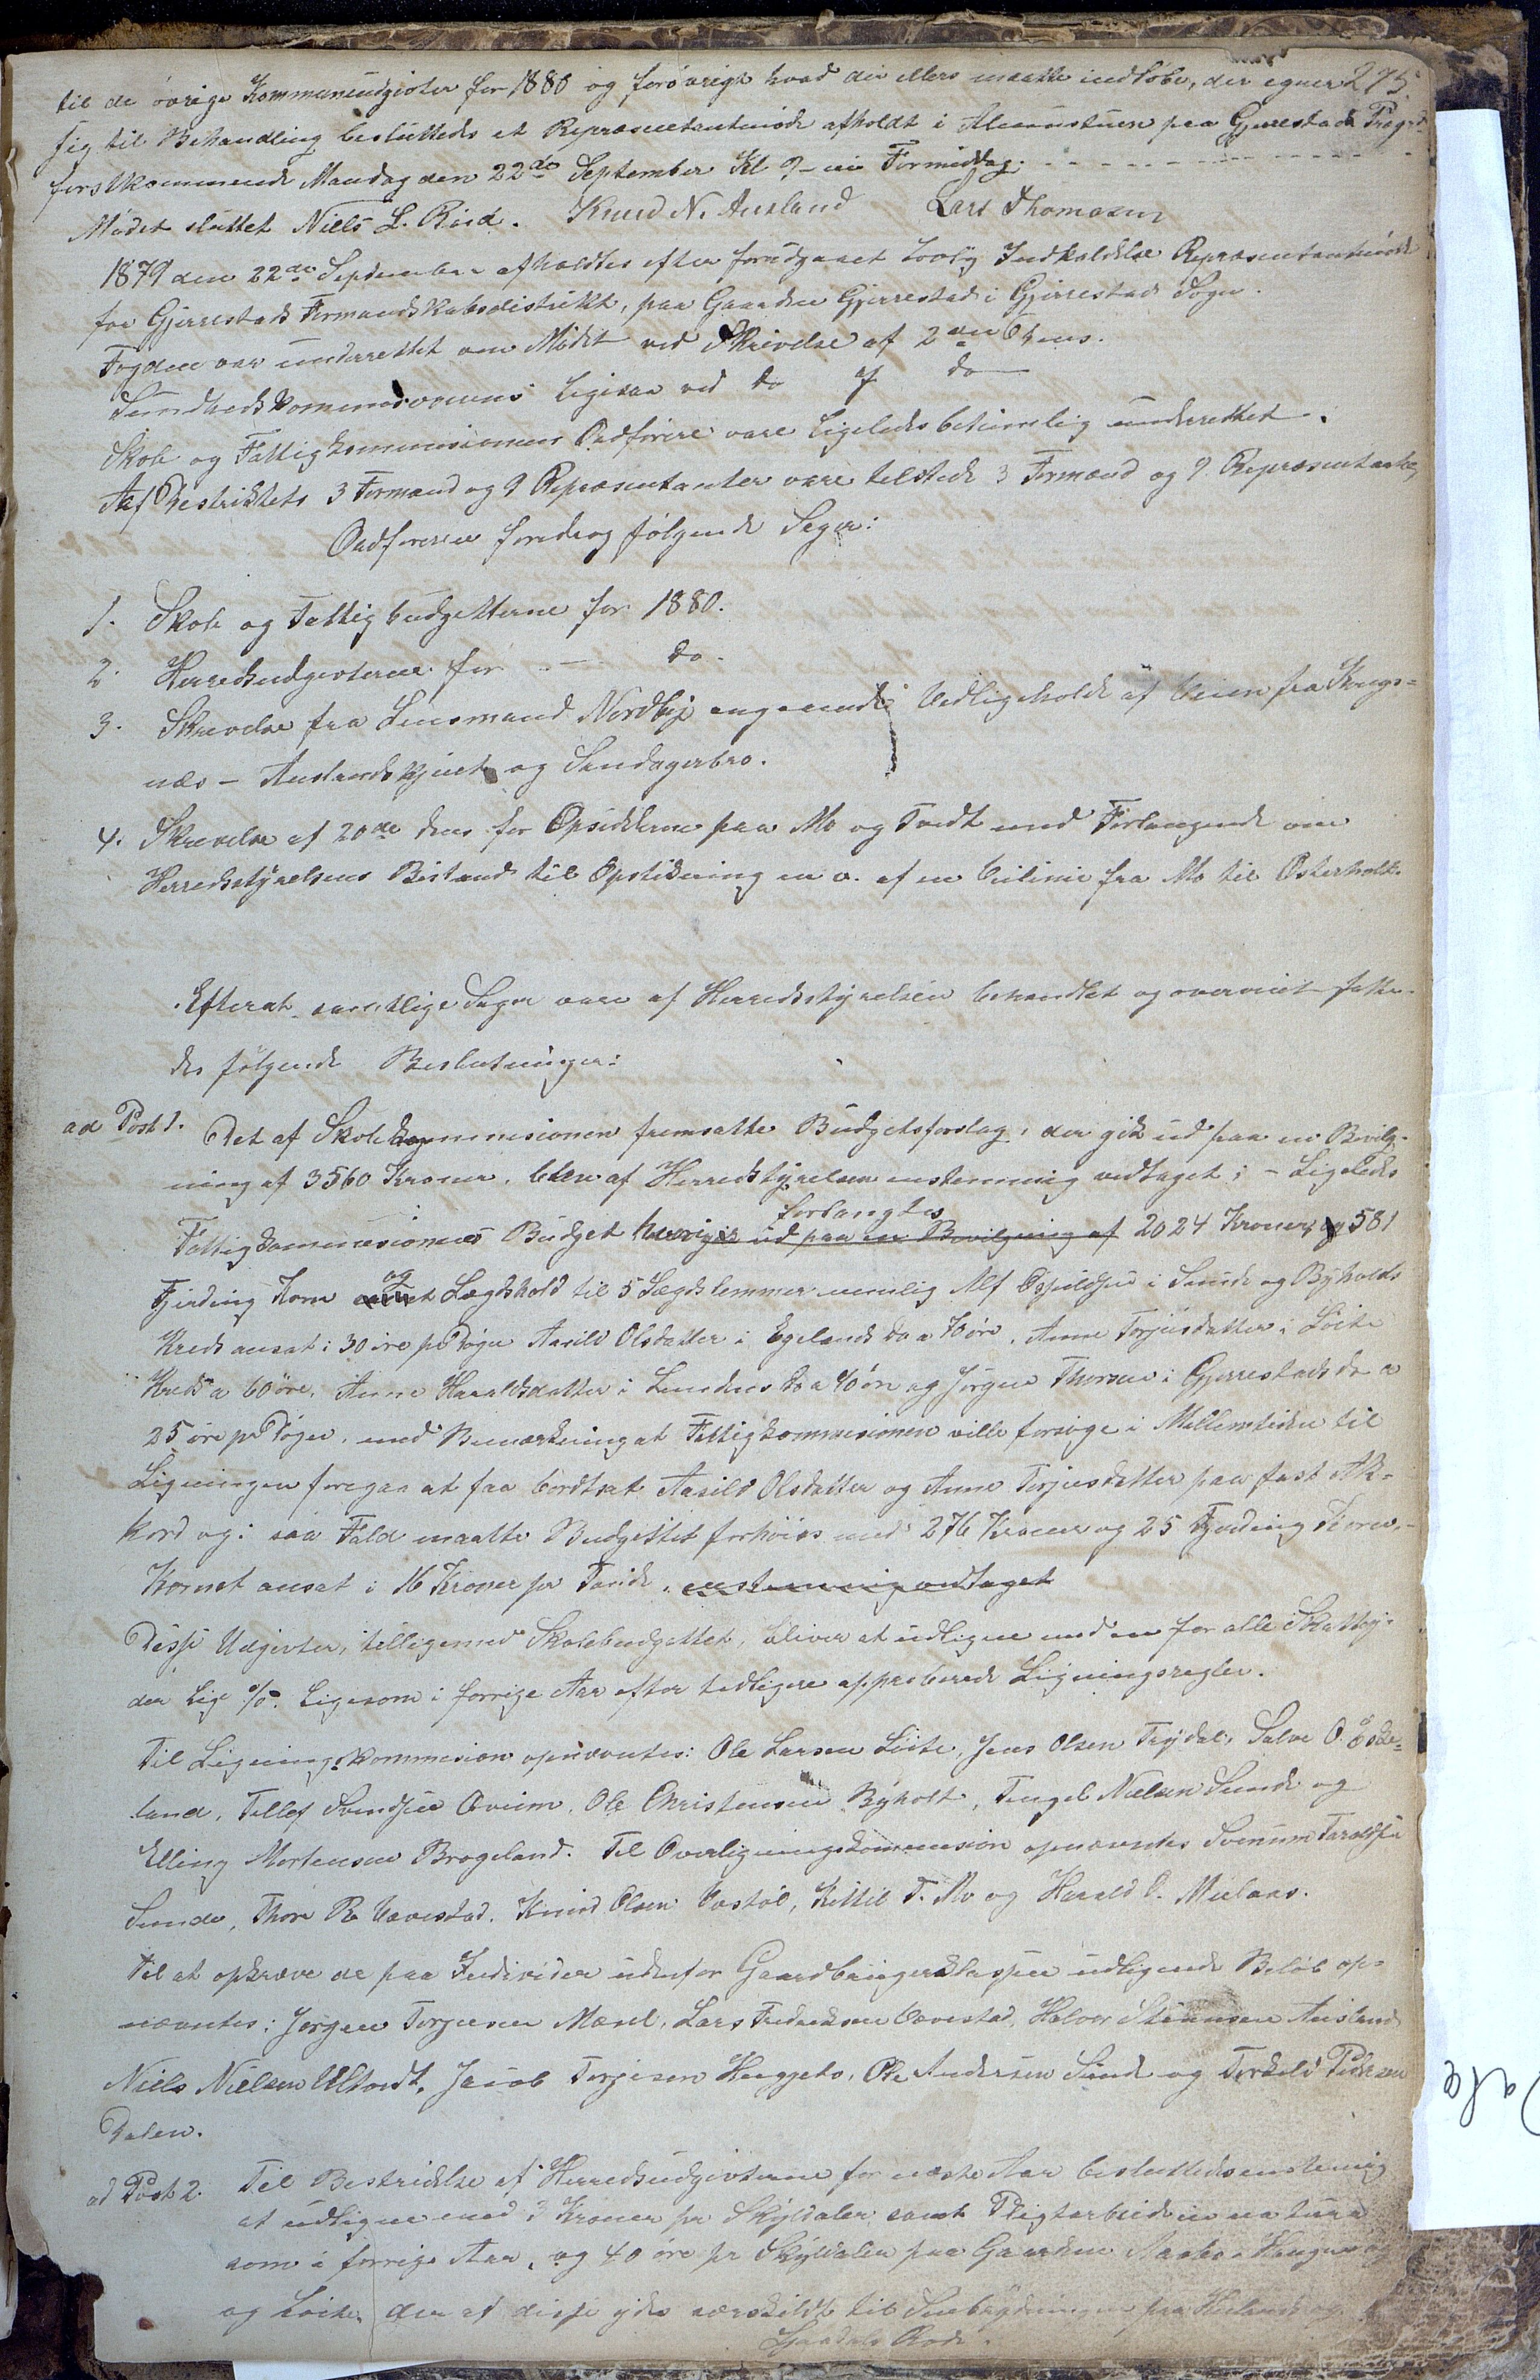 275.
til de övrige Kommuneudgivter for 1880 og forövrigt hvad der ellers maatte indlöbe, der egner
sig til Behandling besluttedes et Repræsentantmöde afholdt i Almuestuen paa Gjerrestads Præg:
förstkommende Mandag den 22de September Kl 9-ni Formiddag.
Mödet sluttet Niels L. Riisd. Knud N. Ausland Lars Thomasen
1879 den 22de September afholdtes efter foredgaaet lovlig Indkaldelse Repræsentantmöde
for Gjerrestads Formandskabsdistrikt, paa Gaarden Gjerrestad i Gjerrestads Sogn.
Fogden var underrettet om Mödet ved Skrivelse af 2den dens.
Sundhedskommisionens ligesaa ved do af do
Skole og Fattigkommisionens Ordförere vare ligeledes betimelig underrettet.
Af Distriktets 3 Formænd og 9 Repræsentanter vare tilstede 3 Formænd og 9 Repræsentanter,
Ordföreren foredrog fölgende Sager:
1. Skole og Fattigbudgetterne for 1880.
2. Herredsudgivterne for - do.
3. Skrivelse fra Lensmand Nordbÿ angaaende Vedligeholde af Veien fra Krogs=
næs - Auslandskjnet og Sundagerbro.
4. Skrivelse af 20de dens for Opsidderne paa Mo og Tvedt med Forlangende om
Herredsstÿrelsens Bistand til Opstikning m.v. af en Veilinie fra Mo til Österholt.
Efterat samtlige Sager vare af Herredsstÿrelsen behandlet og overveiet fatte-
des fölgende Beslutninger:
ad Post 1. Det af Skolekommisionen fremsatte Budgetsforslag, der gik ud paa en Bevilg-
ning af 3560 Kroner, blev af Herredstÿrelsen enstemmig vedtaget; - Ligeledes
forlangtes
Fattigkommisionens Budget hvori gik ud paa en Bevilgning af 2024 Kroner, og 581
Fjerding Korn og Lægdshold til 5 Lægdslemmer nemlig Alf Ospildsen i Sunde og Bÿholds
Kreds ansat i 30 öre pr Dögn Aasild Olsdatter i Egelands do a 70 öre, Anne Terjusdatter i Löite
Kreds a 60 öre, Anne Haraldsdatter i Lundens do a 40 öre og Jörgen Thorsen i Gjerrestads do a
25 öre pr Dögn, med Bemærkning at Fattigkommisionen ville forsöge i Mellemtiden til
Ligningen foregaa at faa bordtsat Aasild Olsdatter og Anne Terjusdatter paa fast Ak=
kord og i saa Fald maatte Budgettet forhöies med 276 Kroner og 25 Fjerding Korn.-
Kornet ansat i 16 Kroner pr Tönde. enstemmig vedtaget
Disse Udgivter, tilligemed Skolebudgettet, bliver at udligne med en for alle Skattÿ-
der lige %. ligesom i forrige Aar efter tidligere approberede Ligningsregler.
Til Ligningskommision opnævntes: Ole Larsen Löite, Jens Olsen Trÿdal, Salve O. Eske=
land, Tellef Svendsen Qveim, Ole Christensen Bÿholt, Tengel Nielsen Sunde og
Elling Mortensen Brogeland. Til Overligningskommision opnævntes Svenum Taraldsen
Sunde, Thore R. Vævestad, Knud Olsen Vastöl, Kittil T. Mo og Harald O. Mielaas.
Til at opkræve de paa Individer udenfor Gaardbrugerklassen udlignede Belöb op=
nævntes: Jörgen Terjusen Mæsel, Lars Fredriksen Vævestad, Halvor Steensen Ausland
Niels Nielsen Ulltvedt, Jacob Terjesen Heggeto, Ole Andersen Sunde og Terkeld Pedersen
Dalen.
ad Post 2. Til Bestridelse af Herredsudgivterne for næste Aar besluttedes enstemmig
at udligne med 3 Kroner pr Skÿldaler, samt Pligtarbeide in natura
som i forrige Aar, og 40 öre pr Skÿldaler paa Gaardene
og Löite, der af disse ÿdes særskildt til Snebrÿdningen paa
Rode.